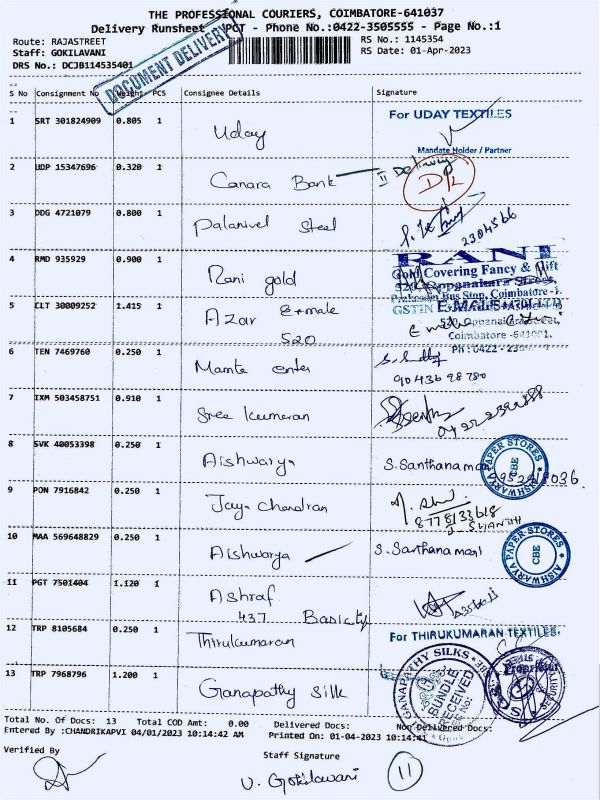 THE PROFESSIONAL COURIERS, COIMBATORE-641037
Delivery Runsheet PCT - Phone No.:0422-3505555 - Page No.:1
Route: RAJASTREET
RS No.: 1145354
Staff: GOKILAVANI
RS Date: 01-Apr-2023
DRS No.: DCJB114535401
DOCUMENT DELIVERY
S No Consignment No Weight PCS Consignee Details Signature
1 SRT 301824909 0.805 1 Uday
For UDAY TEXTILES
Mandate Holder / Partner
2 UDP 15347696 0.320 1 Canara Bank II Delivery D/L
3 DDG 4721079 0.800 1 Palanivel Steel
2304566
4 RMD 935929 0.900 1 Rani gold
RANI
Gold Covering Fancy & Gift
520, Oppanakara Street,
Prakasam Bus Stop, Coimbatore-1.
5 CLT 30009252 1.415 1 Azar E-male
520
GSTIN E-MALE
Coimbatore -641001.
Ph : 0422 -
6 TEN 7469760 0.250 1 Mamta enter
90436 98780
7 IXM 503458751 0.910 1 Sree kumaran
8 SVK 40053398 0.250 1 Aishwarya S. Santhanamani
AISHWARYA PAPER STORES CBE
9 PON 7916842 0.250 1 Jaya chandran
8778133618
10 MAA 569648829 0.250 1 Aishwarya S. Santhanamani
AISHWARYA PAPER STORES CBE
11 PGT 7501404 1.120 1 Ashraf
437
12 TRP 8105684 0.250 1 Thirukumaran
For THIRUKUMARAN TEXTILES.
Proprietor
13 TRP 7968796 1.200 1 Ganapathy Silk
GANAPATHY SILKS
BUNDLE
RECEIVED
Total No. Of Docs: 13 Total COD Amt: 0.00 Delivered Docs: Non Delivered Docs:
Entered By :CHANDRIKAPVI 04/01/2023 10:14:42 AM Printed On: 01-04-2023 10:14:41
Verified By
Staff Signature
V. Gokilavani
11